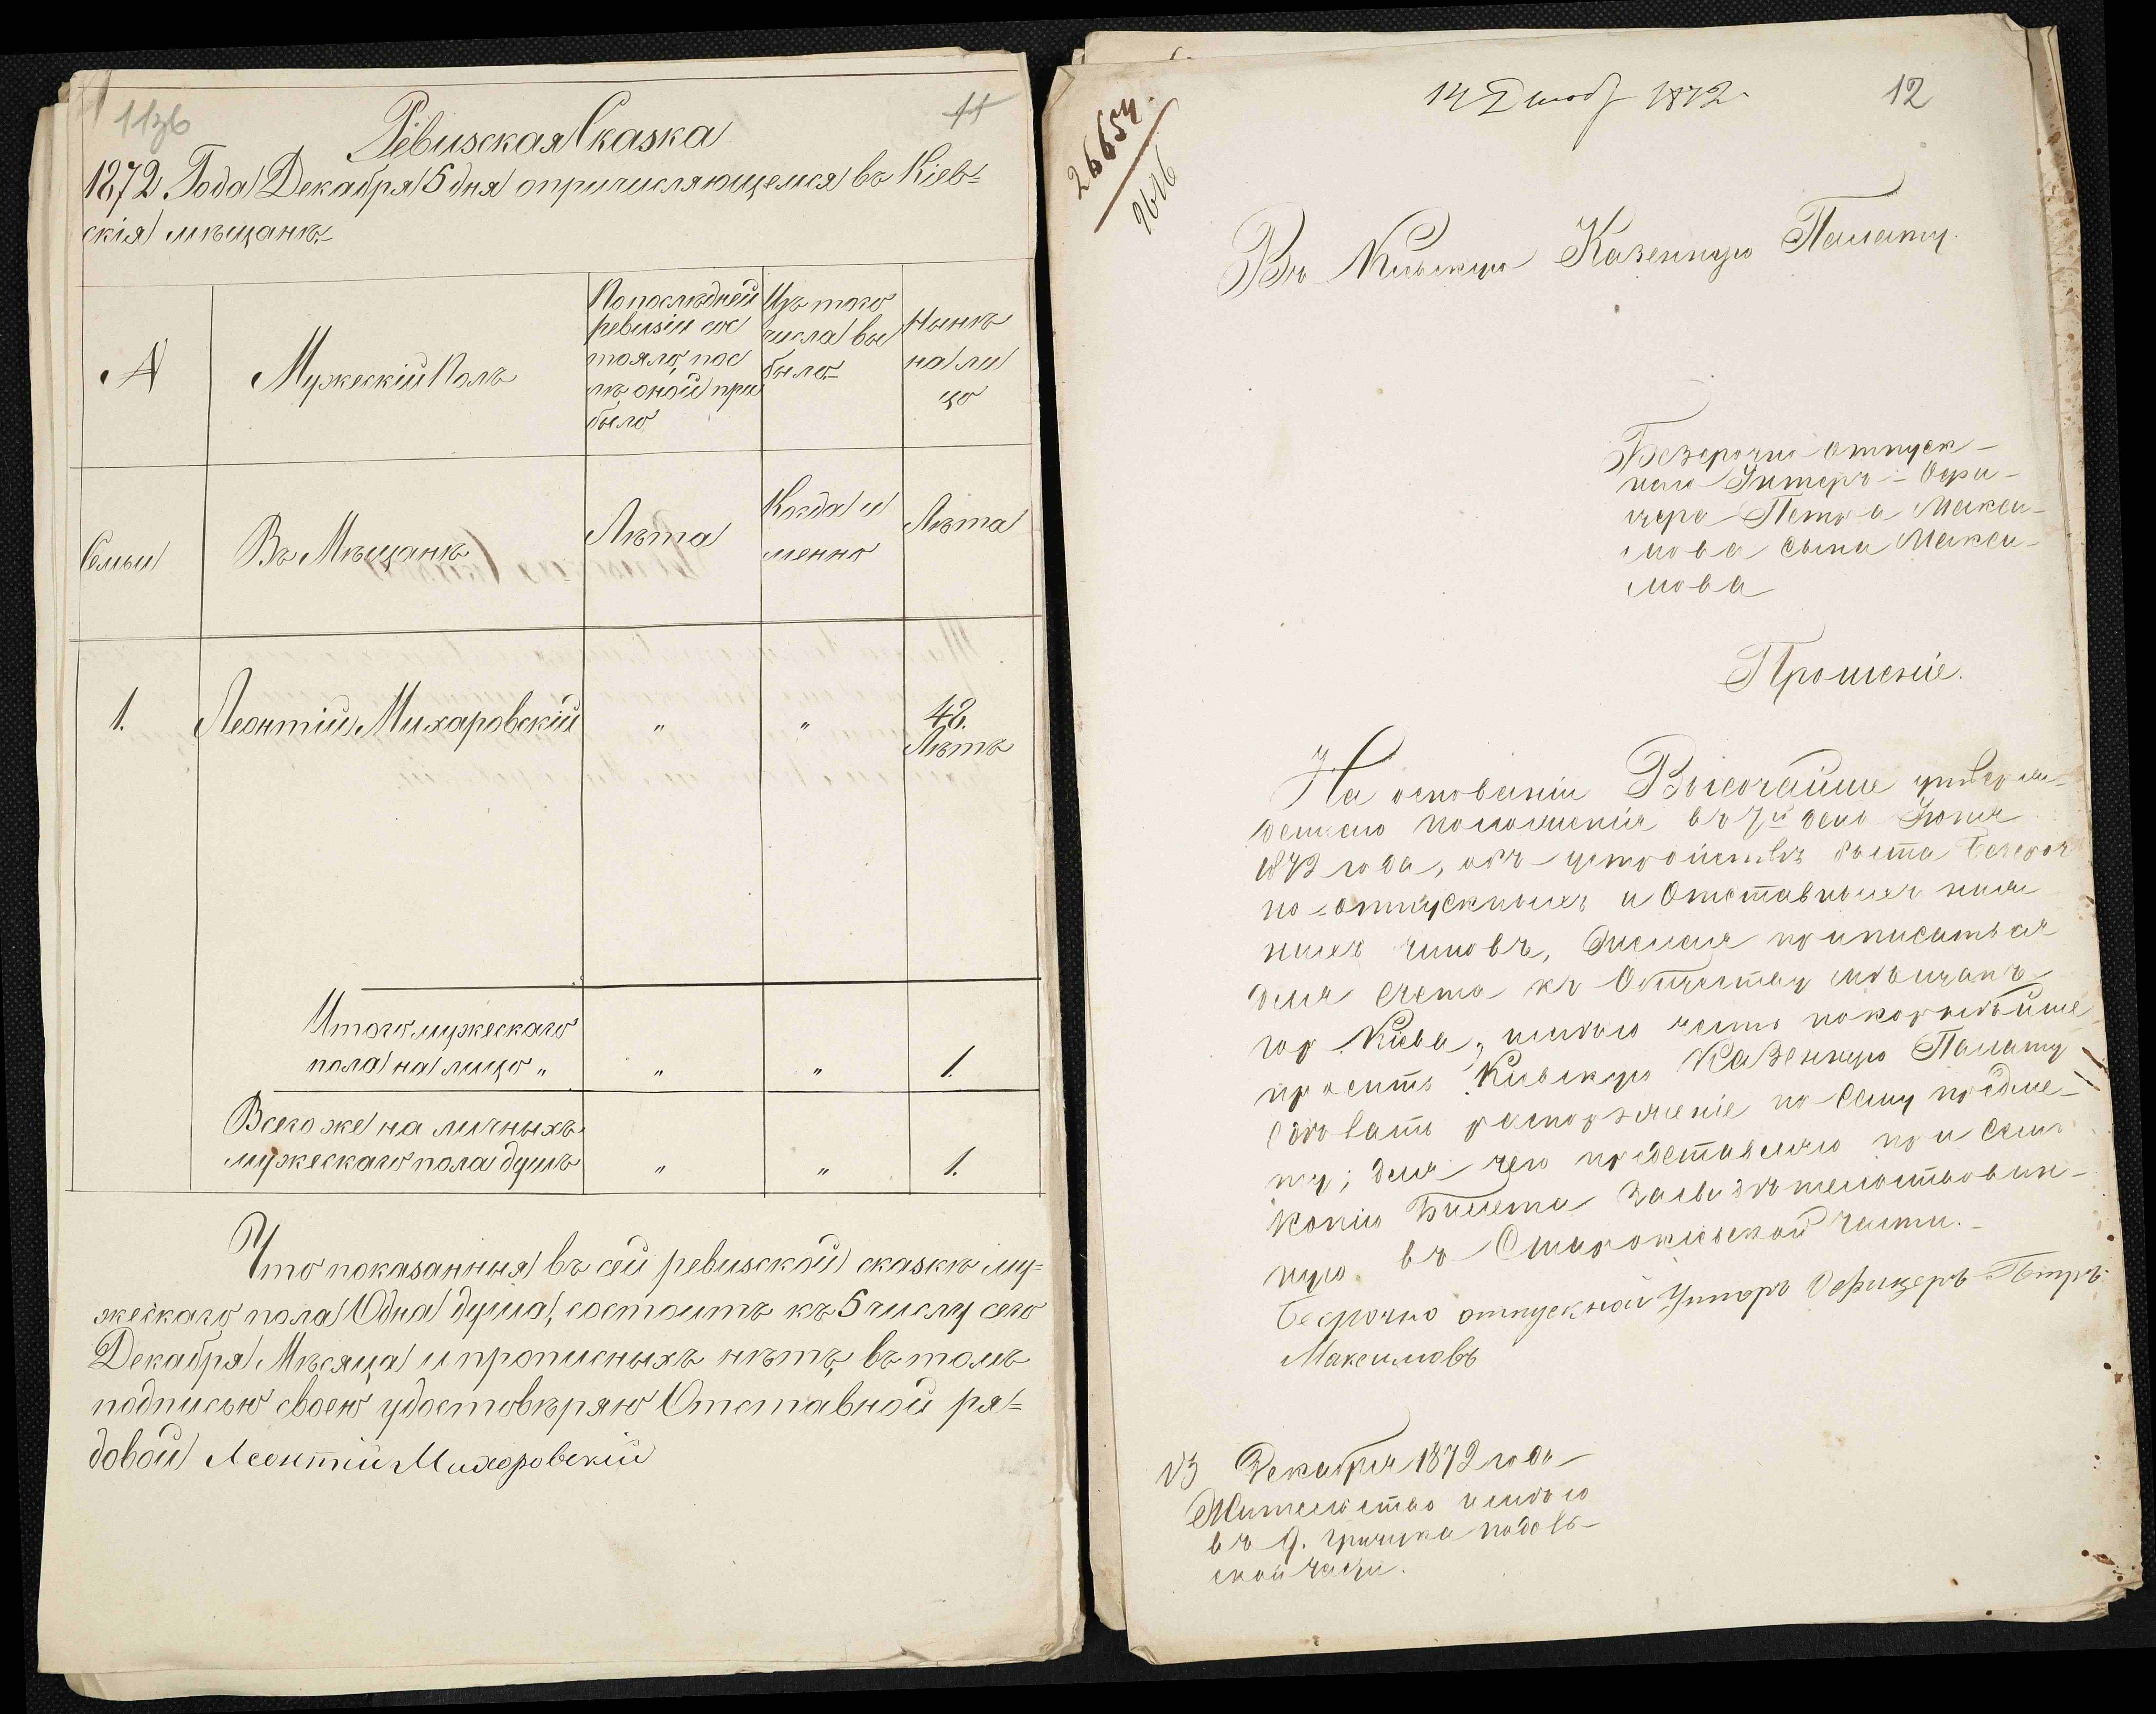 11зв
11
Ревизская Сказка
1872 Года Декабря 5 дня о причисляющемся въ Кіев=
скія мѣщанѣ.
№
Мужескій Полъ
По послѣдней
ревизіи сос
тояло, пос
лѣ оной при
было
Изъ того
числа вы
было
Нынѣ
на ли
цо
Семьи
Въ Мѣщанѣ
Лѣта
Когда и
менно
Лѣта
1.
Леонтій Михаровскій
"
"
42.
Лѣтъ
Итого мужескаго
пола на лицо "
"
"
1.
Всего же на личныхъ
мужескаго пола душъ
"
"
1.
Что показанныя въ сей ревизской сказкѣ му=
жескаго пола Одна душа, состоитъ къ 5 числу сего
Декабря Мѣсяца и прописныхъ нѣтъ, въ томъ
подписью своею удостовѣряю Отставной ря=
довой Леонтій Михоровскій
14 1872
12
26654
2616
Въ Кіевскую Казенную Палату.
Безсрочно отпуск-
наго Унтеръ-Офи-
цера Петра Макси-
мова сына Макси-
мова
Прошеніе.
На основаніи Высочайше утверж-
деннаго положенія въ 7й день Іюня
1872 года, объ устройствѣ быта безсроч
но-отпускныхъ и Отставныхъ ниж
нихъ чиновъ, Желая приписаться
для счета къ Обществу мѣщанъ
гор. Кіева, имѣю честь покорнѣйше
просить Кіевскую Казенную Палату
сдѣлать распоряженіе по сему предме-
ту; для чего представляю при семъ
копію Билета засвидѣтельствован-
ную въ Старокіевской части.
Бесрочно отпускной Унторъ Офицеръ Пётръ
Максимовъ
13 Декабря 1872 года
Жительство имѣю
въ д. подоль-
ской части.